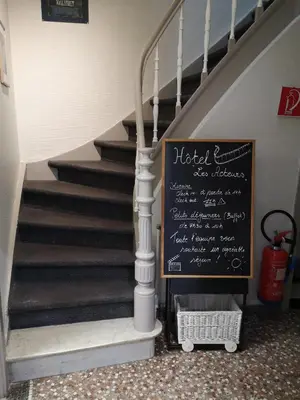 Hôtel
Les Acteurs
Horaire
Check in à partir de 14h
Check out
Petits déjeuners (Buffet)
Toute l'équipe vous
souhaite un agréable
séjour !